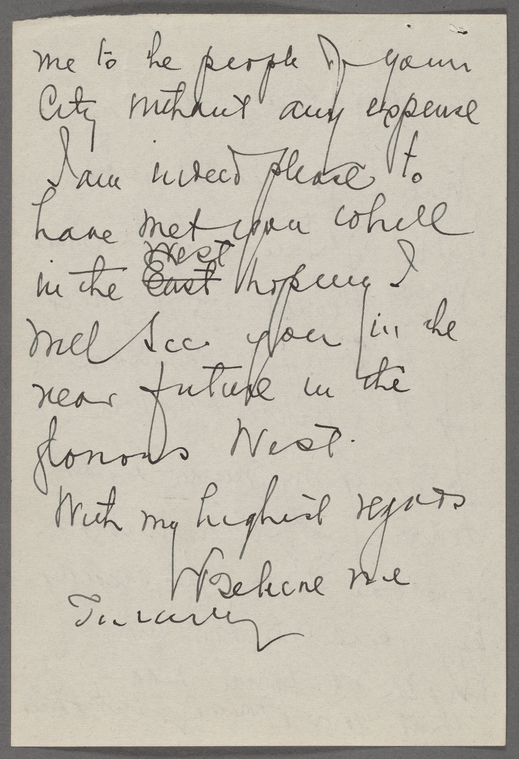 me to the people of your
City without any expense
I am indeed please to
have met you while
West
in the East hoping I
will see you in the
near future in the
glorious West.
With my highest regards
Believe me
Sincerely